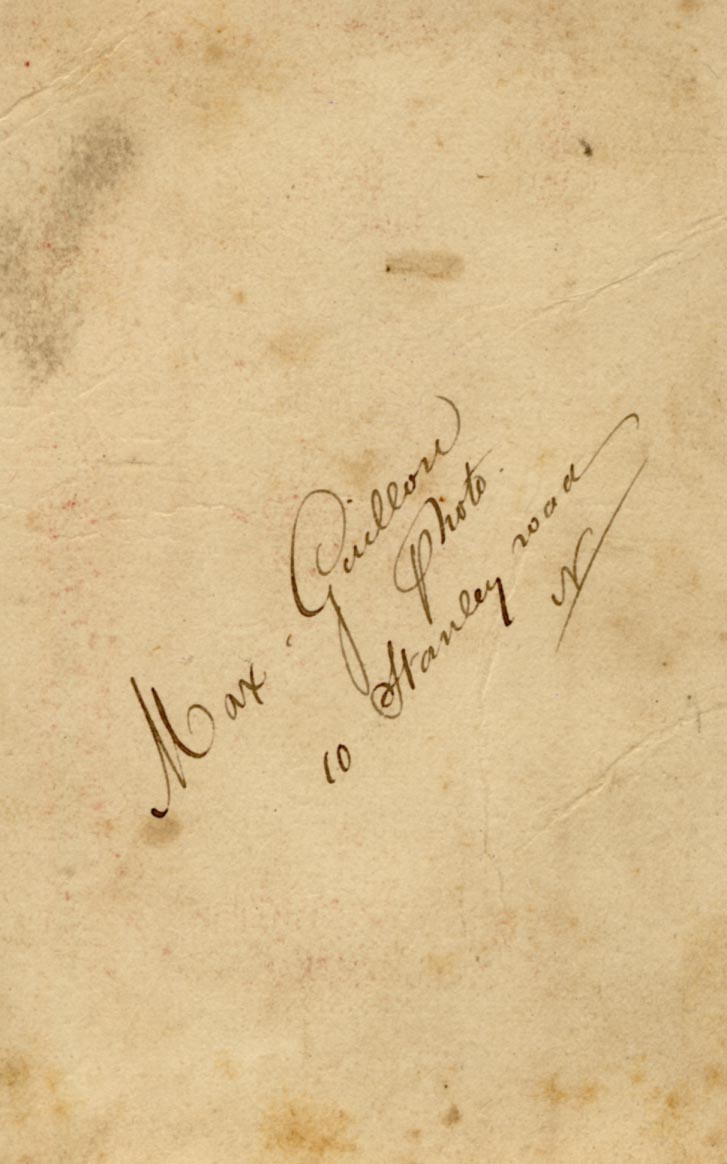 Max. Guillon
Photo.
10 Stanley road
N